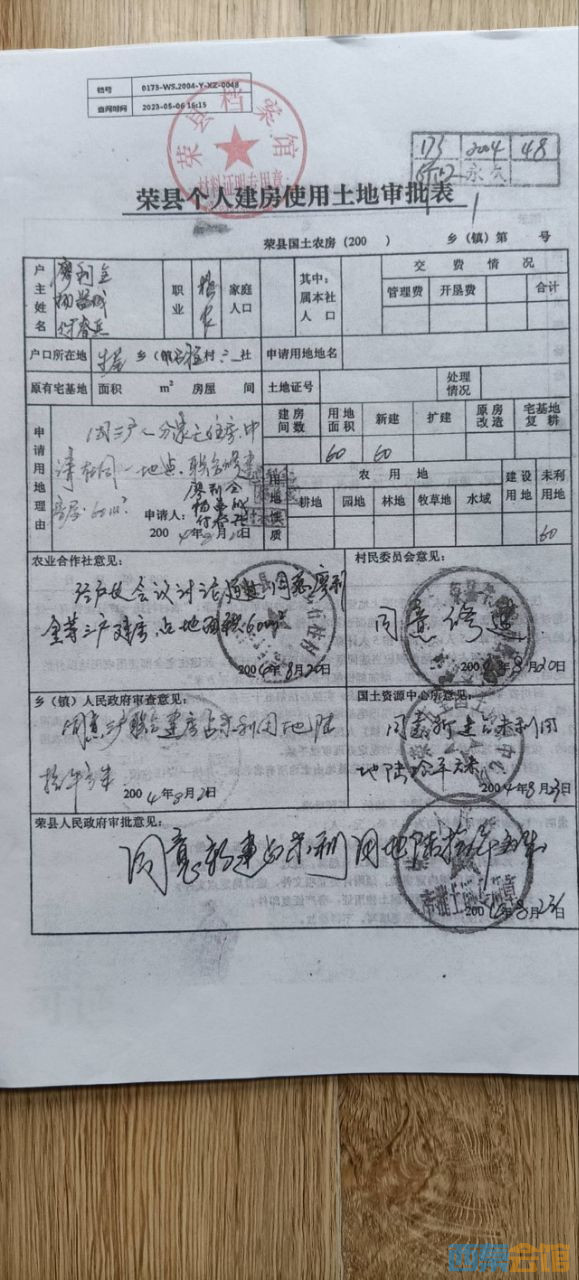 档号 0173-WS.2004-Y-XZ-0048
查阅时间 2023-05-06 16:15
荣县档案馆
材料证明专用章
173 2004 48
永久
荣县个人建房使用土地审批表
荣县国土农房(200 ) 乡(镇)第 号
户主姓名 廖利全
职业
家庭人口
其中:属本社人口
交费情况
管理费 开垦费 合计
户口所在地 乡(镇) 村 社 申请用地地名
原有宅基地 面积 m² 房屋 间 土地证号 处理情况
申请用地理由
建房间数 用地面积 新建 扩建 原房改造 宅基地复耕
60 60
因三户人分家无住房.申
请在同一地点.联合修建
住房.60m²
申请人:廖利全
2004年8月20日
用地性质
农用地 建设用地 未利用地
耕地 园地 林地 牧草地 水域
60
农业合作社意见:
经户代会议讨论通过同意廖利
全等三户建房占地面积60m²
2004年8月20日
村民委员会意见:
同意修建.
2004年8月20日
乡(镇)人民政府审查意见:
同意三户联合建房占未利用地陆
拾平方米
2004年8月21日
国土资源中心所意见:
同意新建占未利用
地陆拾平方米
2004年8月23日
荣县人民政府审批意见:
同意新建占未利用地陆拾平方米
2004年8月23日